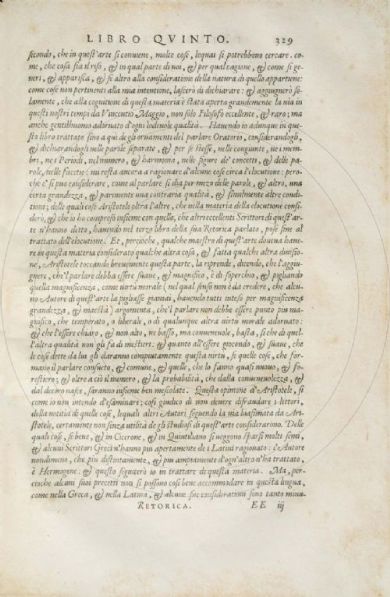 LIBRO QVINTO. 229
secondo, che in quest'arte si conuiene, molte cose, lequai si potrebbeno cercare. come,
che cosa sia il riso, & in qual parte di noi, & per qual cagione, & come si generi,
& apparisca, & se altro alla consideratione della natura di quello appartiene:
come cose non pertinenti alla mia intentione, lascerò di dichiarare: & aggiugnerò solamente,
che alla cognitione di questa materia è stata aperta grandemente la uia in
questi nostri tempi da Vincentio Maggio, non solo Filosofo eccellente, & raro; ma
anche gentilhuomo adornato d'ogni lodeuole qualità. Hauendo io adunque in questo
libro trattato sino a qui de gli ornamenti del parlare Oratorio, considerandogli,
& dichiarandogli nelle parole separate, & per se stesse, nelle congiunte, ne i membri,
ne i Periodi, nel numero, & harmonia, nelle figure de' concetti, & delle parole,
nelle facetie; mi resta ancora a ragionare d'alcune cose circa l'elocutione: peroche
e' si può considerare, come al parlare si dia per mezo delle parole, & altro, una
certa grandezza, & parimente una contraria qualità, & similmente altre conditioni;
delle quali cose Aristotele oltra l'altre, che nella materia della elocutione considerò,
& che io ho compreso insieme con quello, che altri eccellenti Scrittori di quest'arte
n'hanno detto, hauendo nel terzo libro della sua Retorica parlato, pose fine al
trattato dell'elocutione. Et, percioche, qualche maestro di quest'arte doueua hauere
in questa materia considerato qualche altra cosa, & fatta qualche altra diuisione,
Aristotele toccando breuemente questa parte, la riprende, dicendo, che l'aggiugnere,
che'l parlare debba essere suaue, & magnifico, è di souerchio, & pigliando
quella magnificenza, come uirtù morale (nel qual senso non è da credere, che alcuno
Autore di quest'arte la pigliasse giamai, hauendo tutti inteso per magnificenza
grandezza, & maestà) argomenta, che'l parlare non debba essere punto piu magnifico,
che temperato, o liberale, o di qualunque altra uirtù morale adornato:
& che l'essere chiaro, & non alto, ne basso, ma conueneuole, basta, si che di quell'altra
qualità non gli fa di mestiere. & quanto all'essere giocondo, & suaue, che
le cose dette da lui gli daranno compiutamente questa uirtù, se quelle cose, che formano
il parlare consueto, & comune, & quelle, che lo fanno quasi nuouo, & forestiero;
& oltre a ciò il numero, & la probabilità, che dalla conueneuolezza, &
dal decoro nasce, saranno insieme ben mescolate. Questa opinione d'Aristotele, si
come io non intendo d'esaminare; così giudico di non douere defraudare i lettori
della notitia di quelle cose, lequali altri Autori seguendo la uia biasimata da Aristotele,
certamente non senza utilità de gli studiosi di quest'arte considerarono. Delle
quali cose, se bene, & in Cicerone, & in Quintiliano si ueggono sparsi molti semi,
& alcuni Scrittori Greci n'hanno piu apertamente de i Latini ragionato: l'Autore
nondimeno, che piu distintamente, & piu ampiamente d'ogn'altro n'ha trattato,
è Hermogene: & questo seguirò io in trattare di questa materia. Ma, percioche
alcuni suoi precetti non si possono così bene accommodare in questa lingua,
come nella Greca, & nella Latina, & alcune sue considerationi sono tanto minu-
RETORICA. EE iij